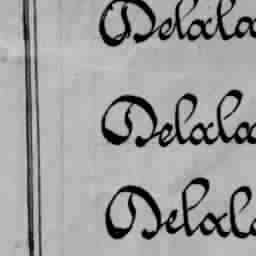 Delala
Delala
Delala